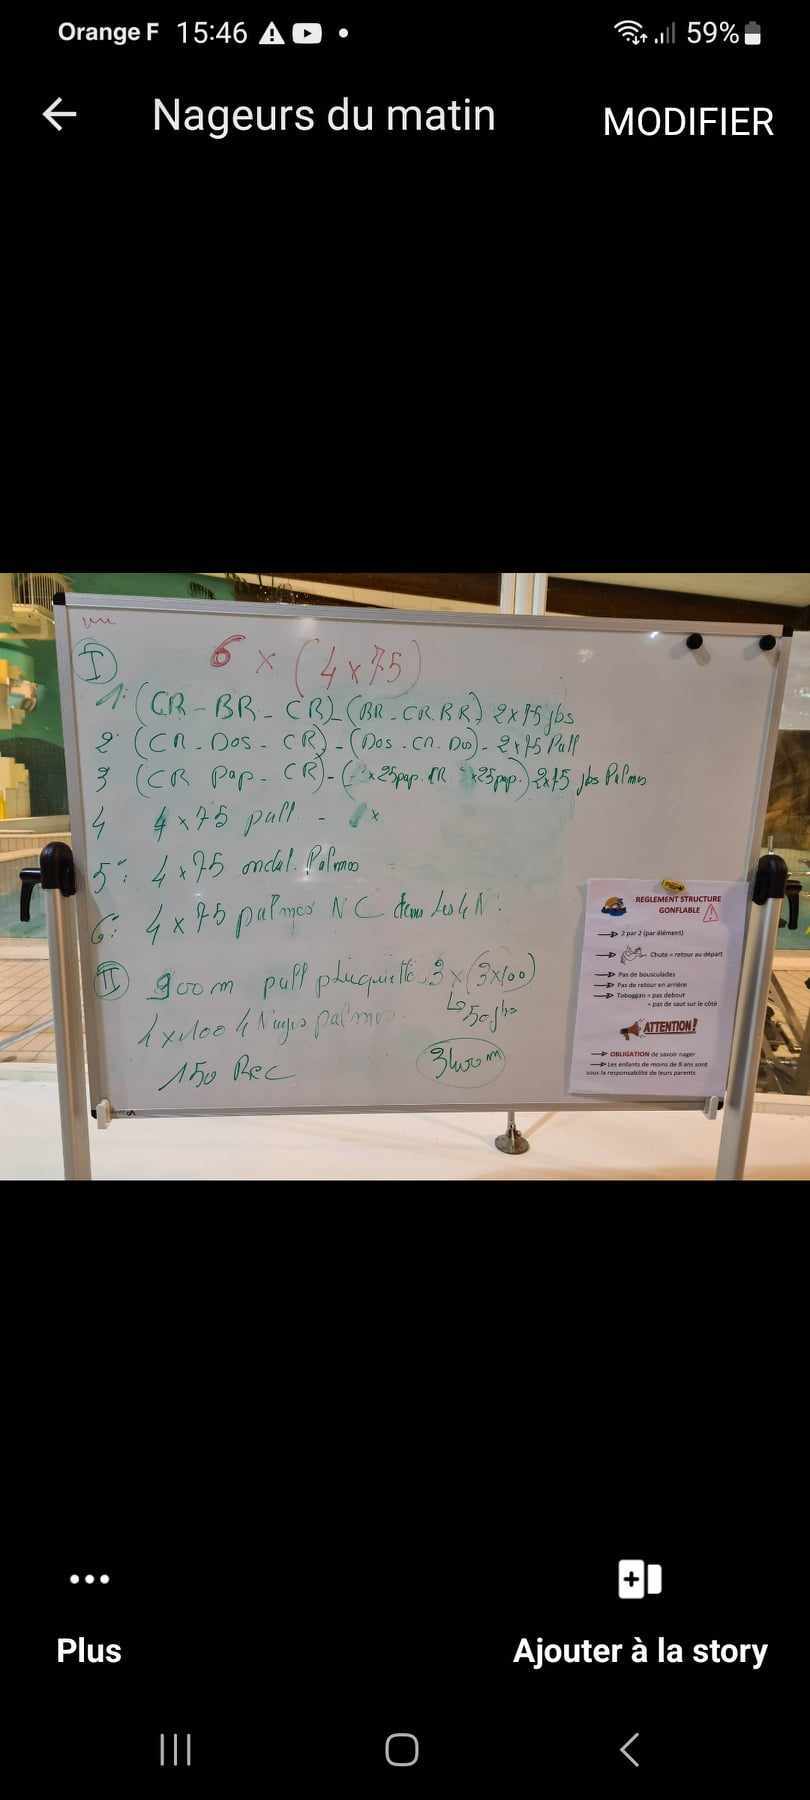 Orange F 15:46 59%
Nageurs du matin
MODIFIER
I 6 x (4 x 75)
1: (CR - BR - CR) - (BR - CR. BR) 2x75 jbs
2 (CR - Dos - CR) - (Dos - CR. Dos) - 2x75 Pull
3 (CR Pap - CR) - ( x25pap. CR x25pap.) 2x75 jbs Palmes
4 4 x 75 pull - x
5: 4 x 75 ondul. Palmes
6: 4 x 75 palmes NC dans les 4 N.
II 900m pull plaquettes 3 x (3x100)
50 jbs
4x100 4 Nages palmes
150 Rec
3400m
REGLEMENT STRUCTURE
GONFLABLE
2 par 2 (par élément)
Chute = retour au départ
Pas de bousculades
Pas de retour en arrière
Toboggan = pas debout
= pas de saut sur le côté
ATTENTION!
OBLIGATION de savoir nager
Les enfants de moins de 8 ans sont
sous la responsabilité de leurs parents
Plus
Ajouter à la story